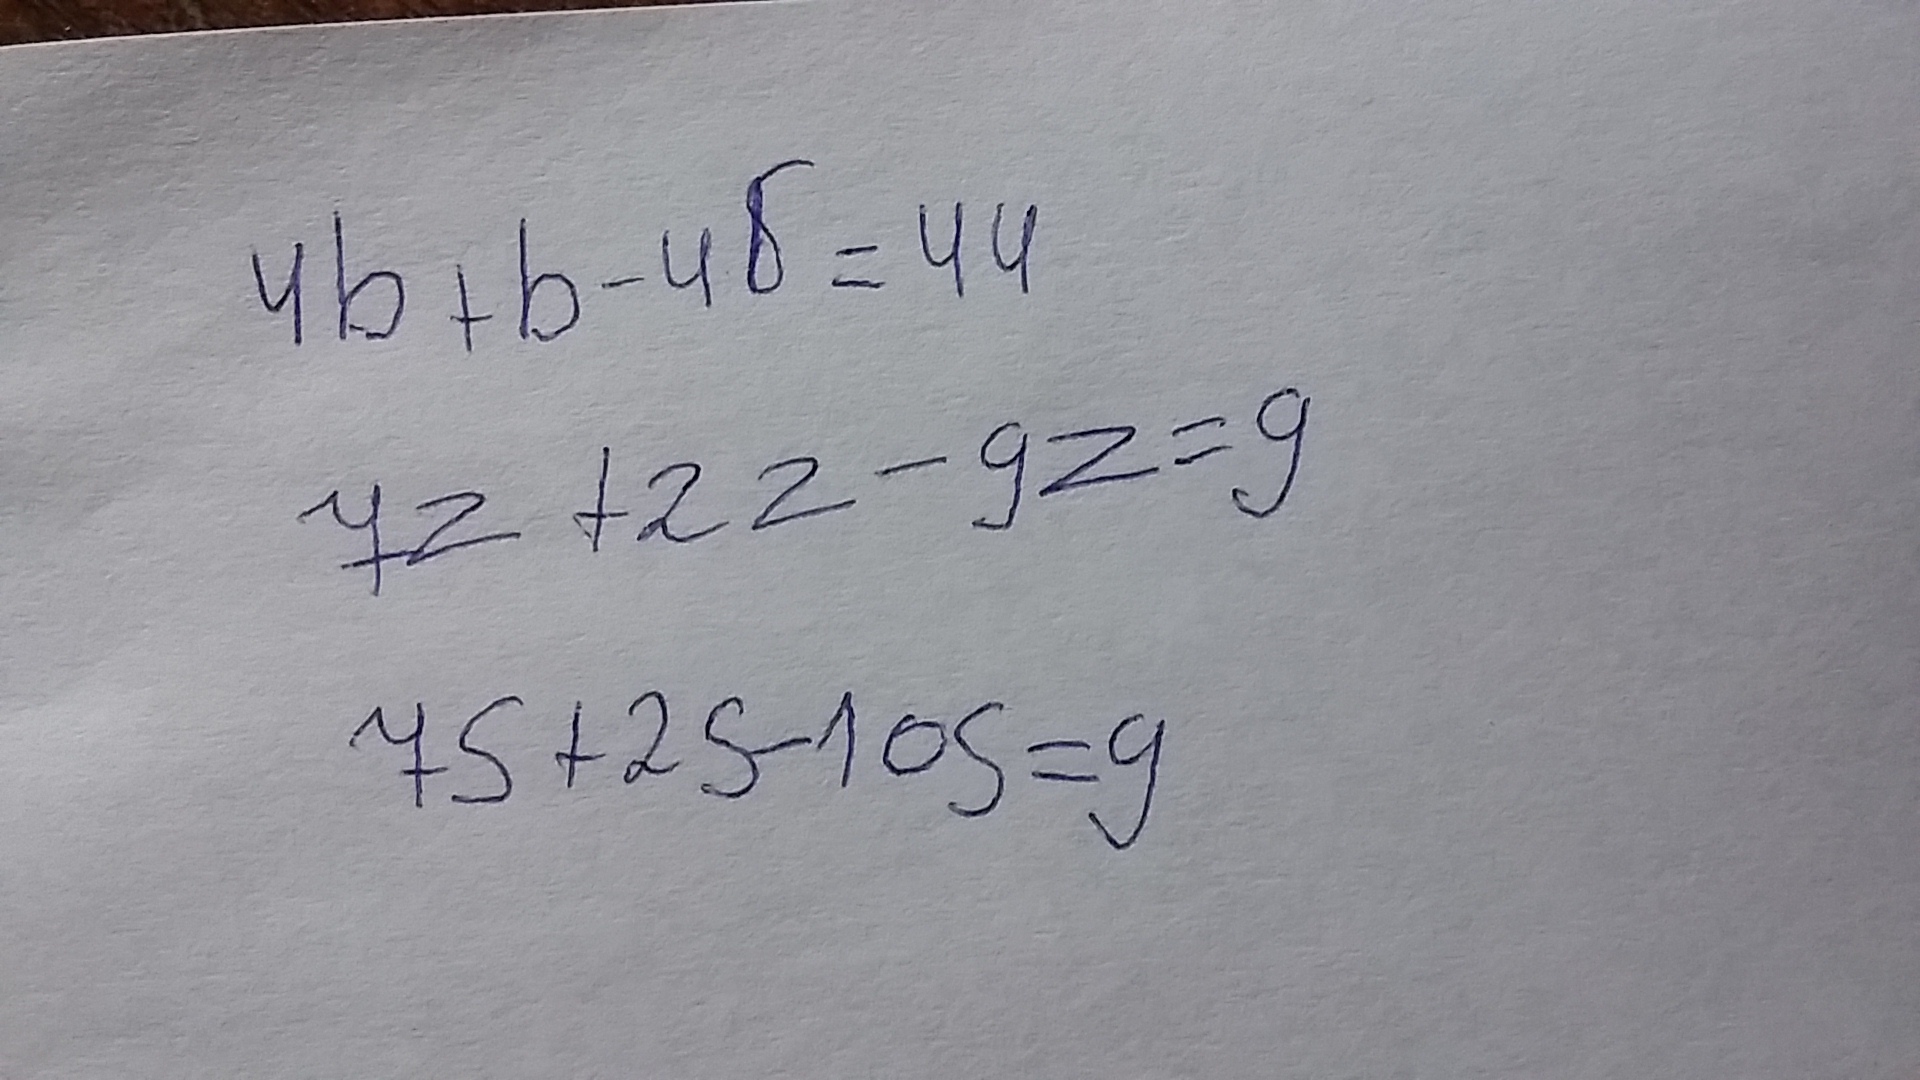 4b+b-4б=44
7z+2z-9z=9
7s+2s-10s=9